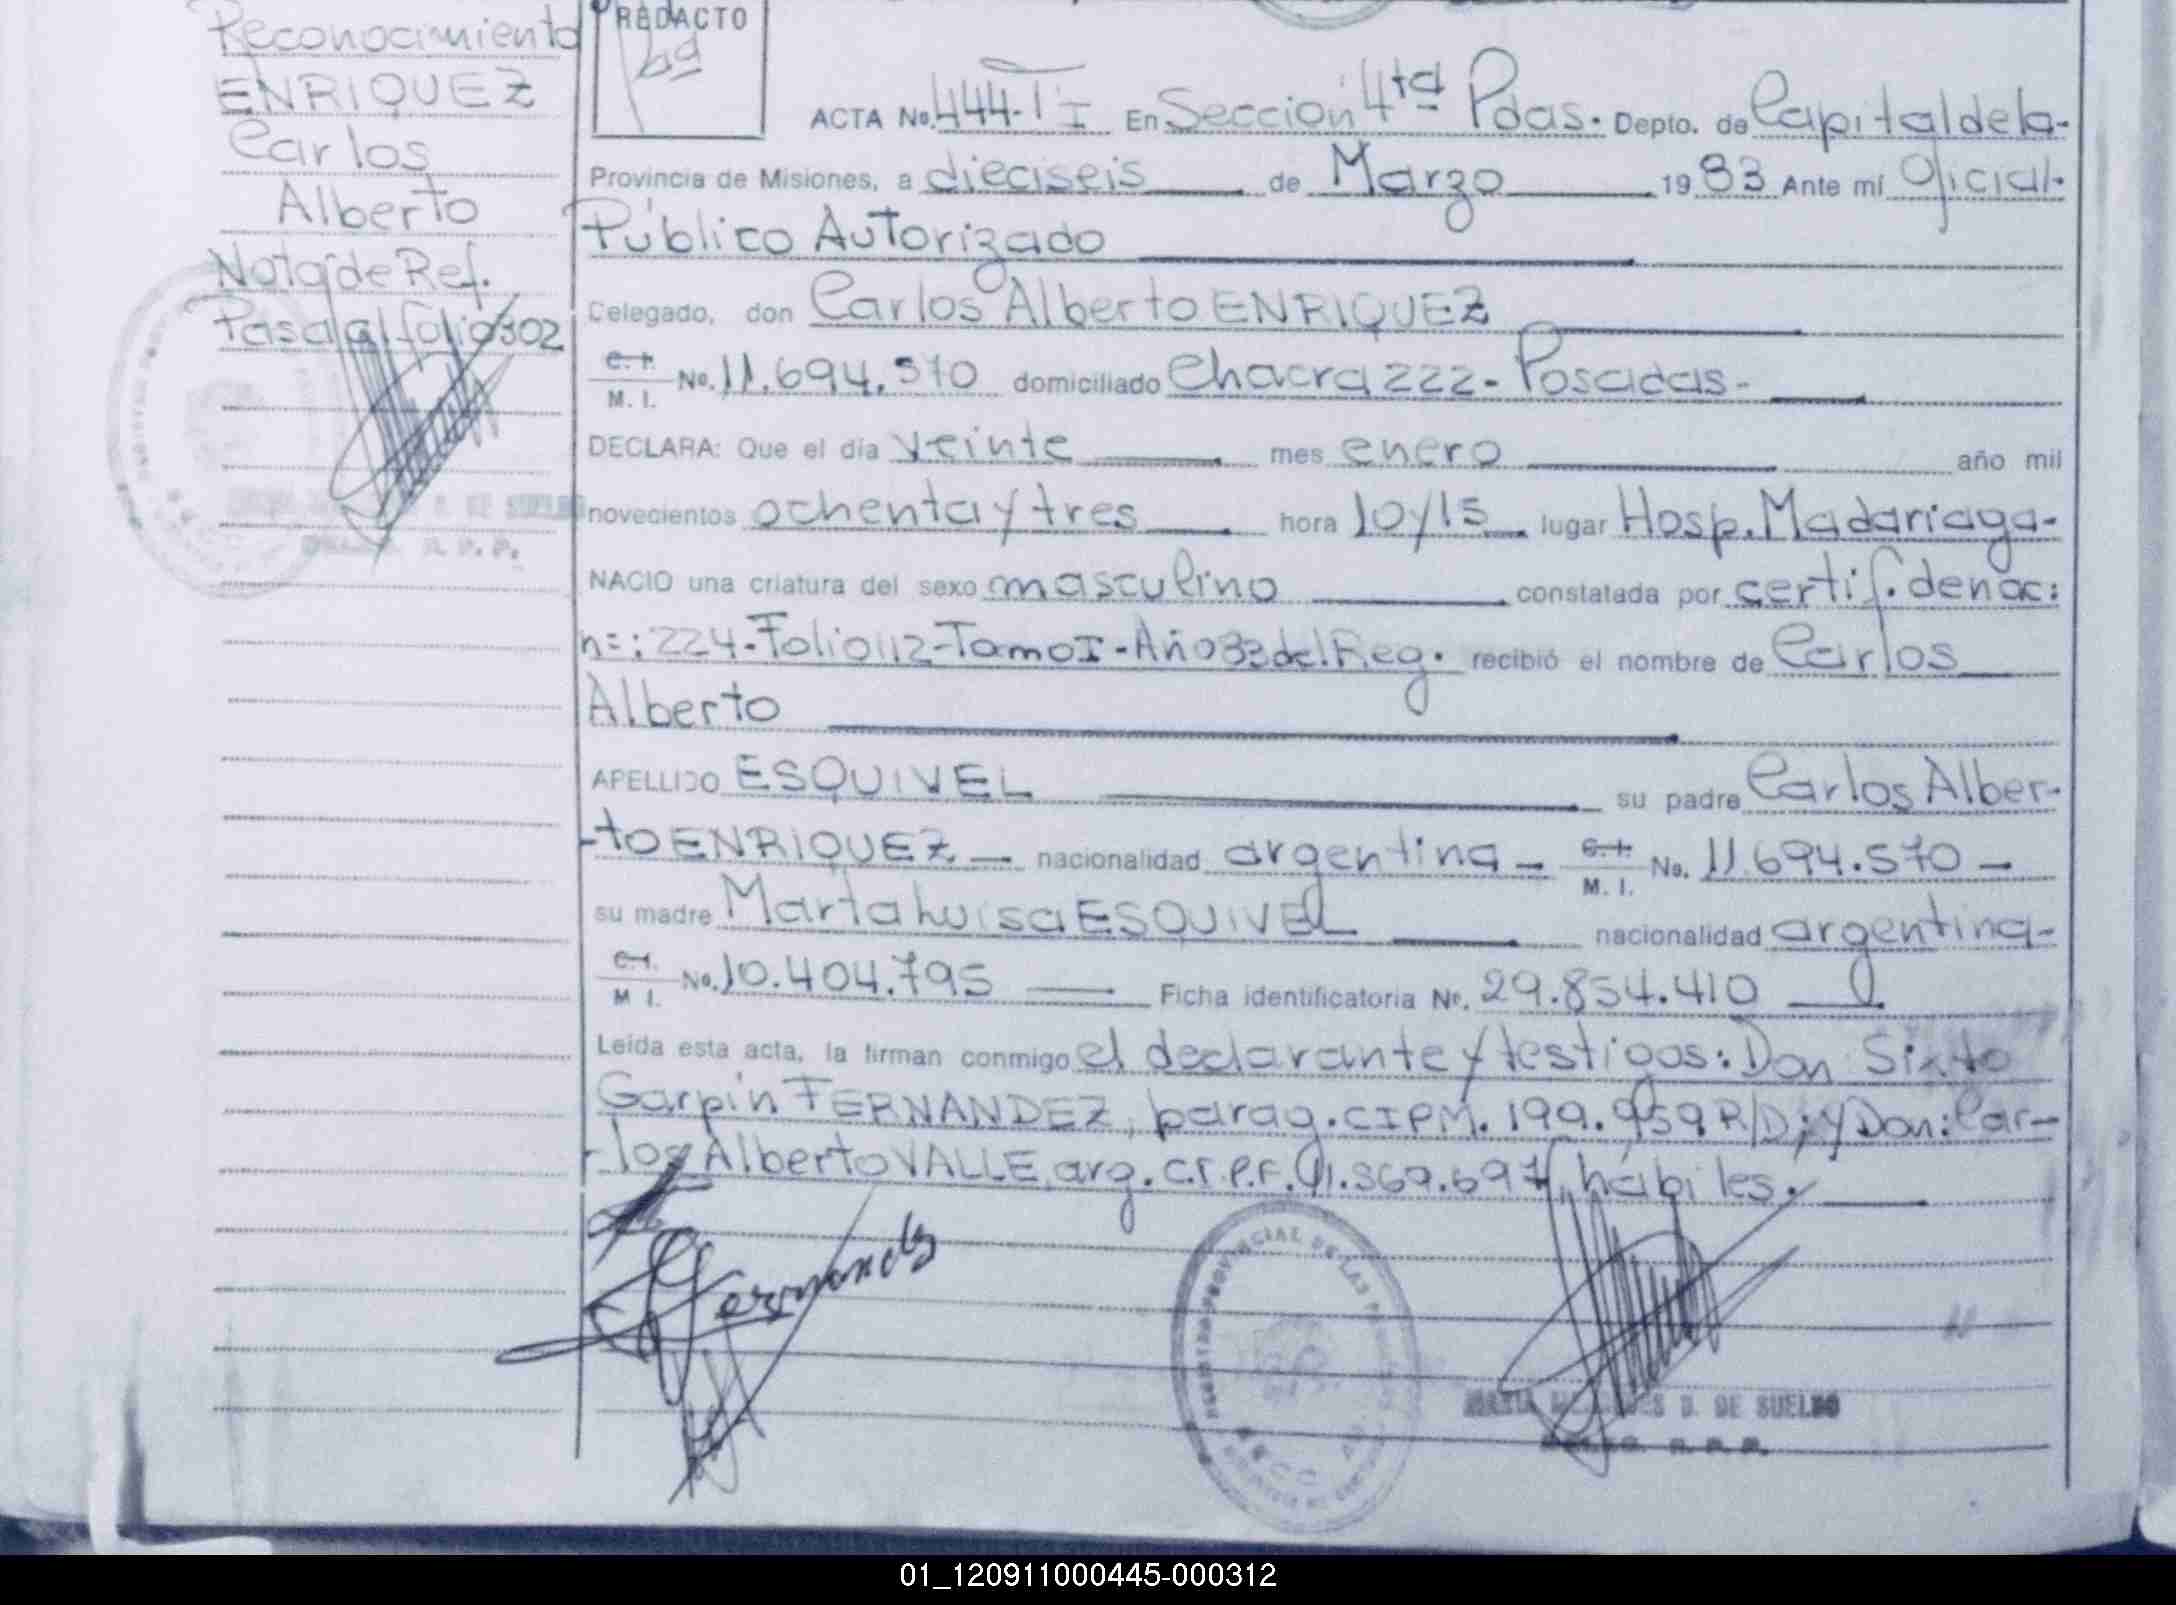 Reconocimiento
ENRIQUEZ
Carlos
Alberto
Nota de Ref.
Pasa al folio 302
D. DE SUELDO
REDACTO
ACTA No. 444-T I En Sección 4ta Pdas. Depto. de Capital de la-
Provincia de Misiones, a dieciseis de Marzo 1983 Ante mí Oficial.
Público Autorizado
Celegado, don Carlos Alberto ENRIQUEZ
C. I. M. I. No. 11.694.570 domiciliado Chacra 222- Posadas-
DECLARA: Que el día veinte mes enero año mil
novecientos ochenta y tres hora 10y15 lugar Hosp. Madariaga-
NACIO una criatura del sexo masculino constatada por certif. de nac:
n=: 224-Folio 112-Tomo I-Año 83 del Reg. recibió el nombre de Carlos
Alberto
APELLIDO ESQUIVEL su padre Carlos Alber-
-to ENRIQUEZ- nacionalidad argentina- C. I. M. I. No. 11.694.570-
su madre Marta Luisa ESQUIVEL nacionalidad argentina-
C. I. M I. No. 10.404.795 Ficha identificatoria No. 29.854.410
Leída esta acta, la firman conmigo el declarante y testigos: Don Sixto
Garpin FERNANDEZ, parag. CIPM. 199.959 R/D; y Don: Car-
-los Alberto VALLE, arg. C.I.P.F. 11.369.697, hábiles.
Fernandez
PROVINCIAL DE LAS
D. DE SUELDO
01_120911000445-000312